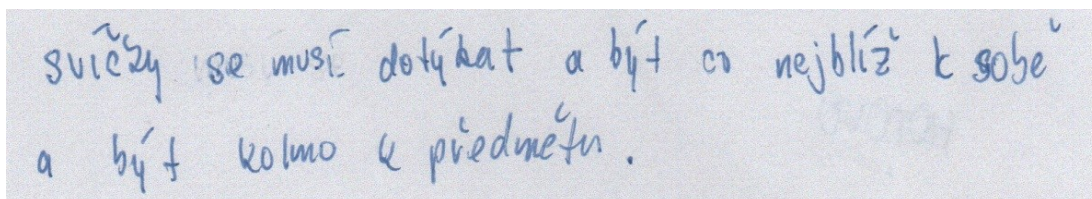 svíčky se musí dotýkat a být co nejblíž k sobě
a být kolmo k předmětu.